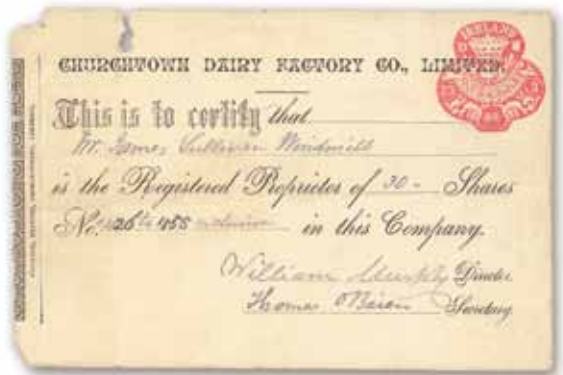 CHURCHTOWN DAIRY FACTORY CO., LIMITED.
IRELAND
This is to certify that
Mr. James Sullivan Windmill
is the Registered Proprietor of 30 - Shares
No. 426 to 455 inclusive in this Company.
William Murphy Director
Thomas O'Brien Secretary